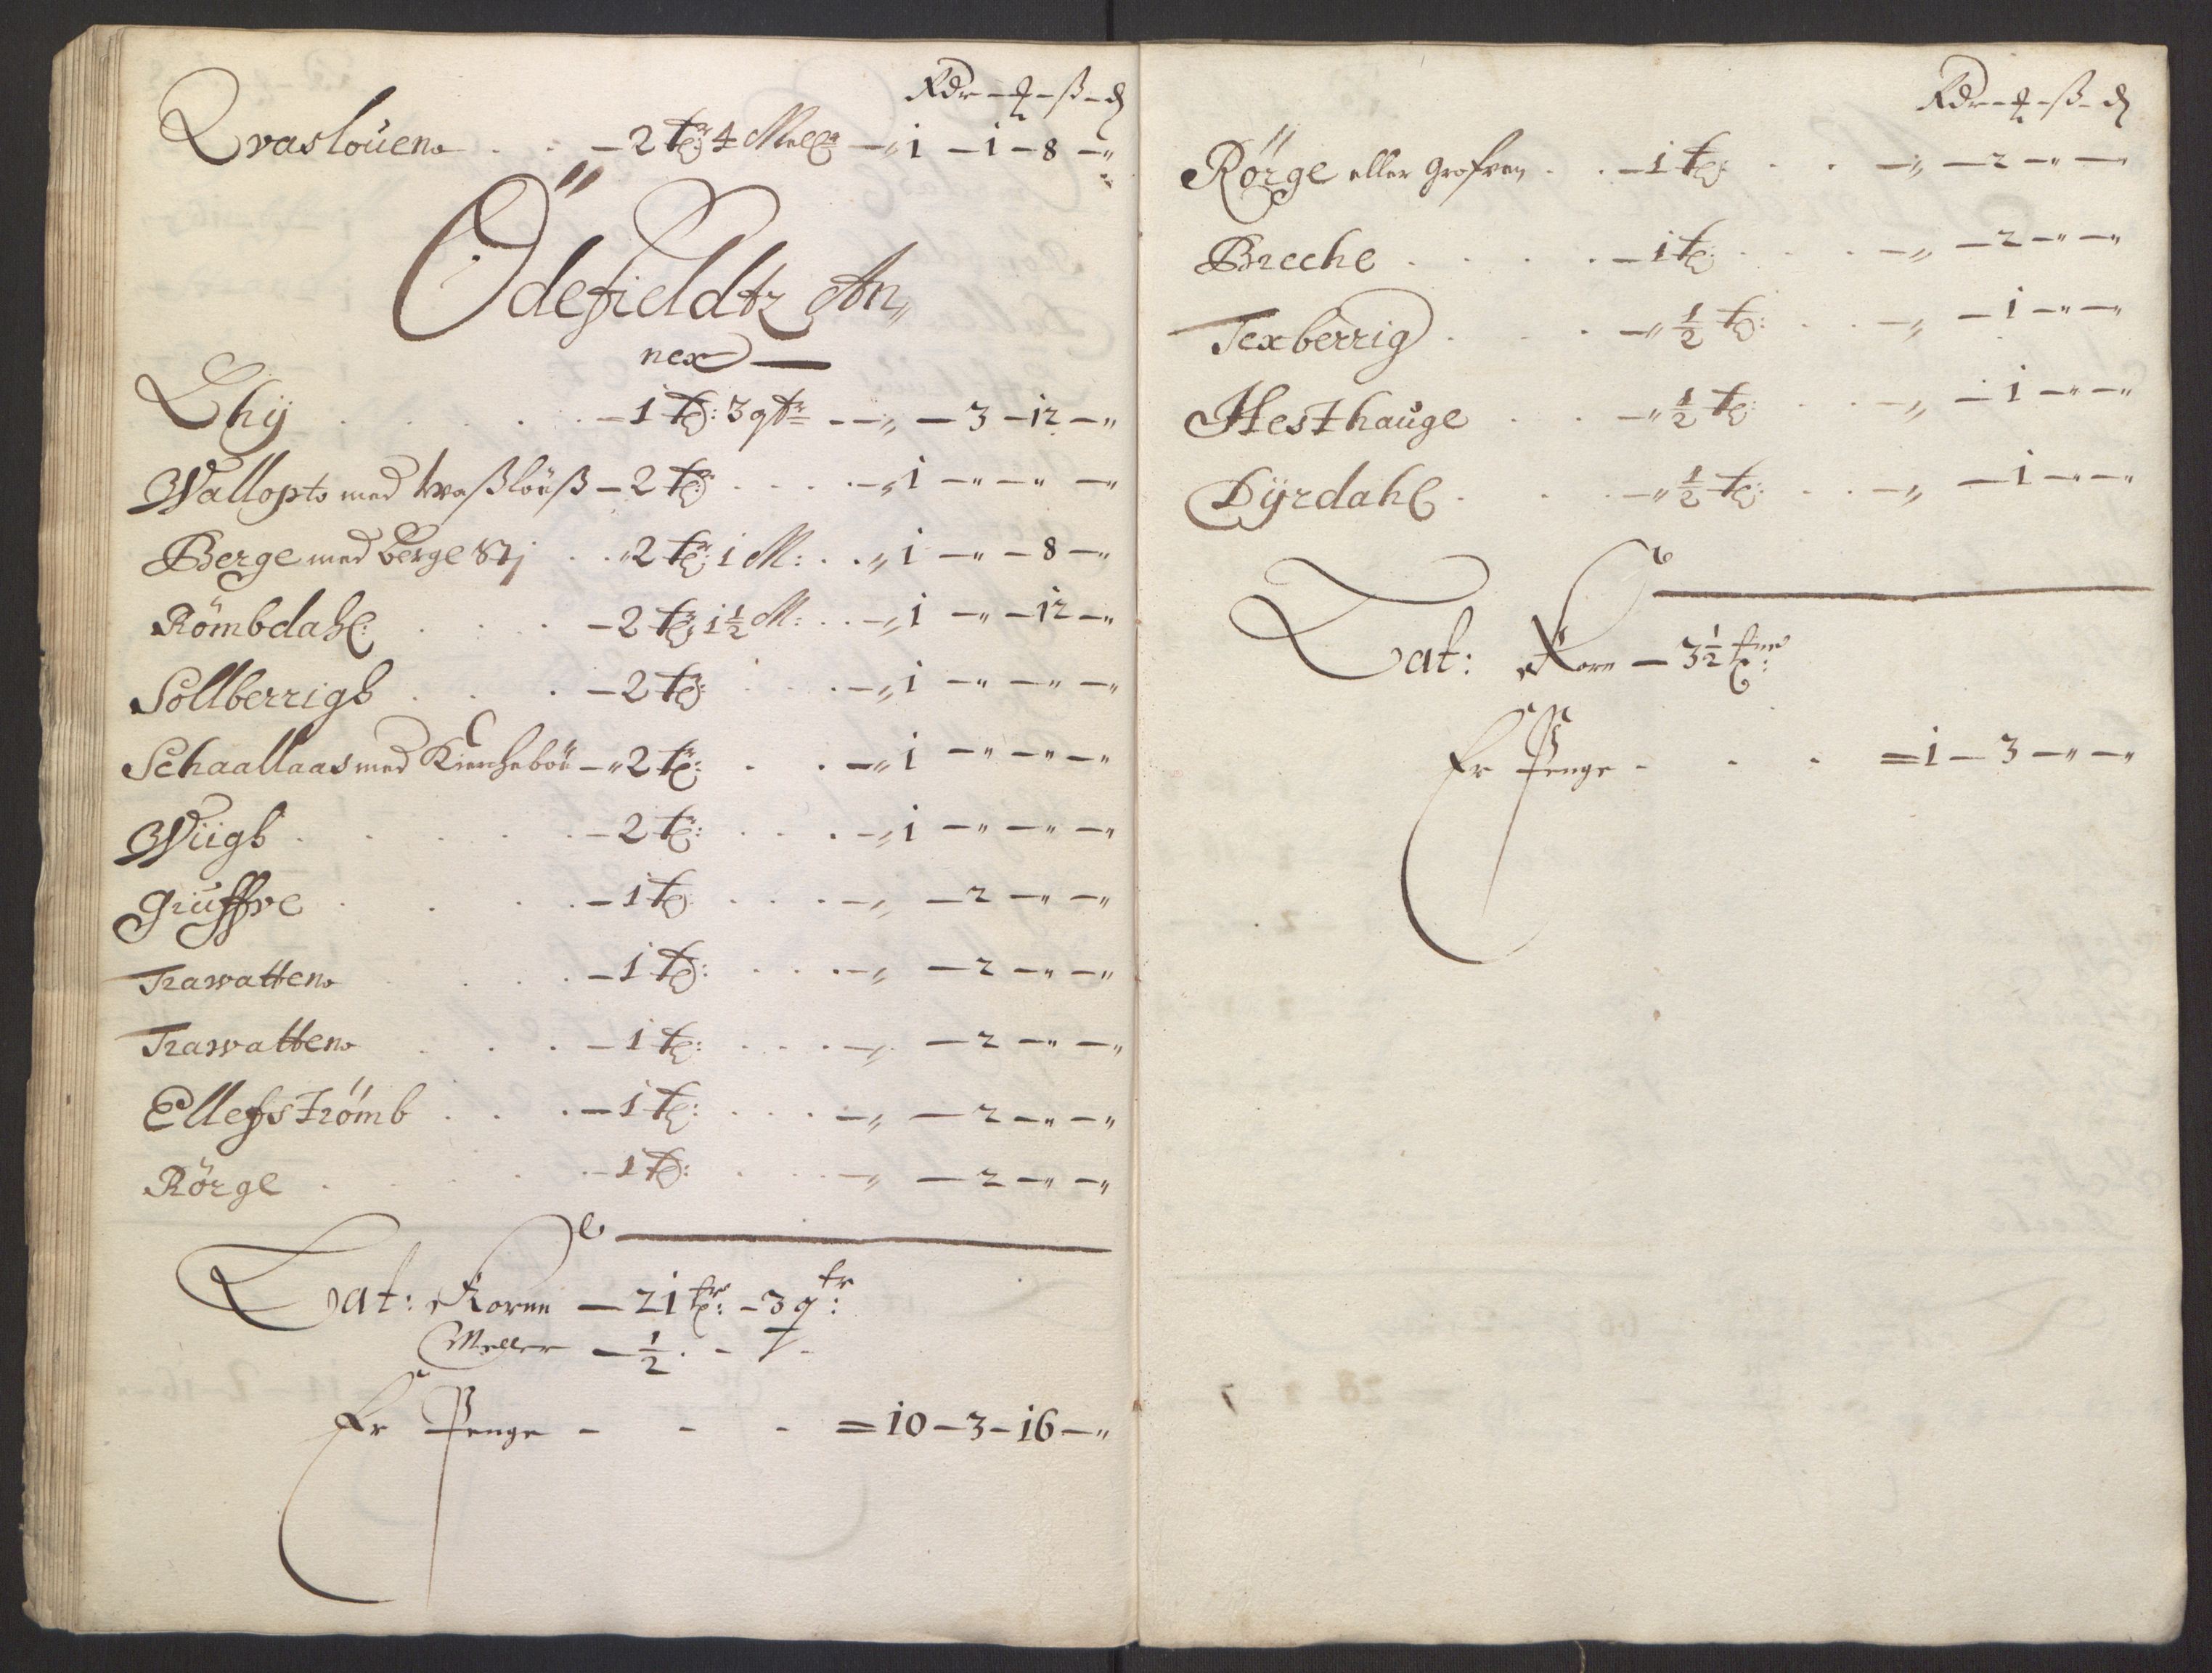 Rdr — ß —
Qvaslouen — 2 t: 4 Mell: — " 1 — 1 — 8 — "
Ödefieldtz An,,
nex —
Lhÿ — 1 t: 3 qtr — " — 3 — 12 — "
Wallopto med kvaßlöuß — 2 t: — " 1 — " — " —
Berge med berge Stj — 2 t: 1 M: — " 1 — " — 8 — "
Römbdahl: — 2 t: 1½ M: — " 1 — " — 12 — "
Sollberrigb — 2 t: — " 1 — " — " — "
Schaallaas med Kircheböe — " 2 t: — " 1 — " — " — "
Wiigb — 2 t: — " 1 — " — " — "
Gruffve — 1 t: — " — 2 — " — "
Trawatten — 1 t: — " — 2 — " — "
Trawatten — 1 t: — " — 2 — " — "
Ellefströmb — 1 t: — " — 2 — " — "
Rörge — 1 t: — " — 2 — " — "
Lat: Korn — 21 tr: — 3 qtr:
Meller — ½
Er Penge — = 10 — 3 — 16 — "
Rdr — ß —
Rörge eller Grofven — 1 t: — " — 2 — " —
Breche — 1 t: — " — 2 — " — "
Texberrig — " ½ t: — " — 1 — " — "
Hesthauge — " ½ t: — " — 1 — " — "
Dÿrdahl — " ½ t: — " — 1 — " — "
Lat: Korn — 3½ tnr:
Er Penge — = 1 — 3 — " — "